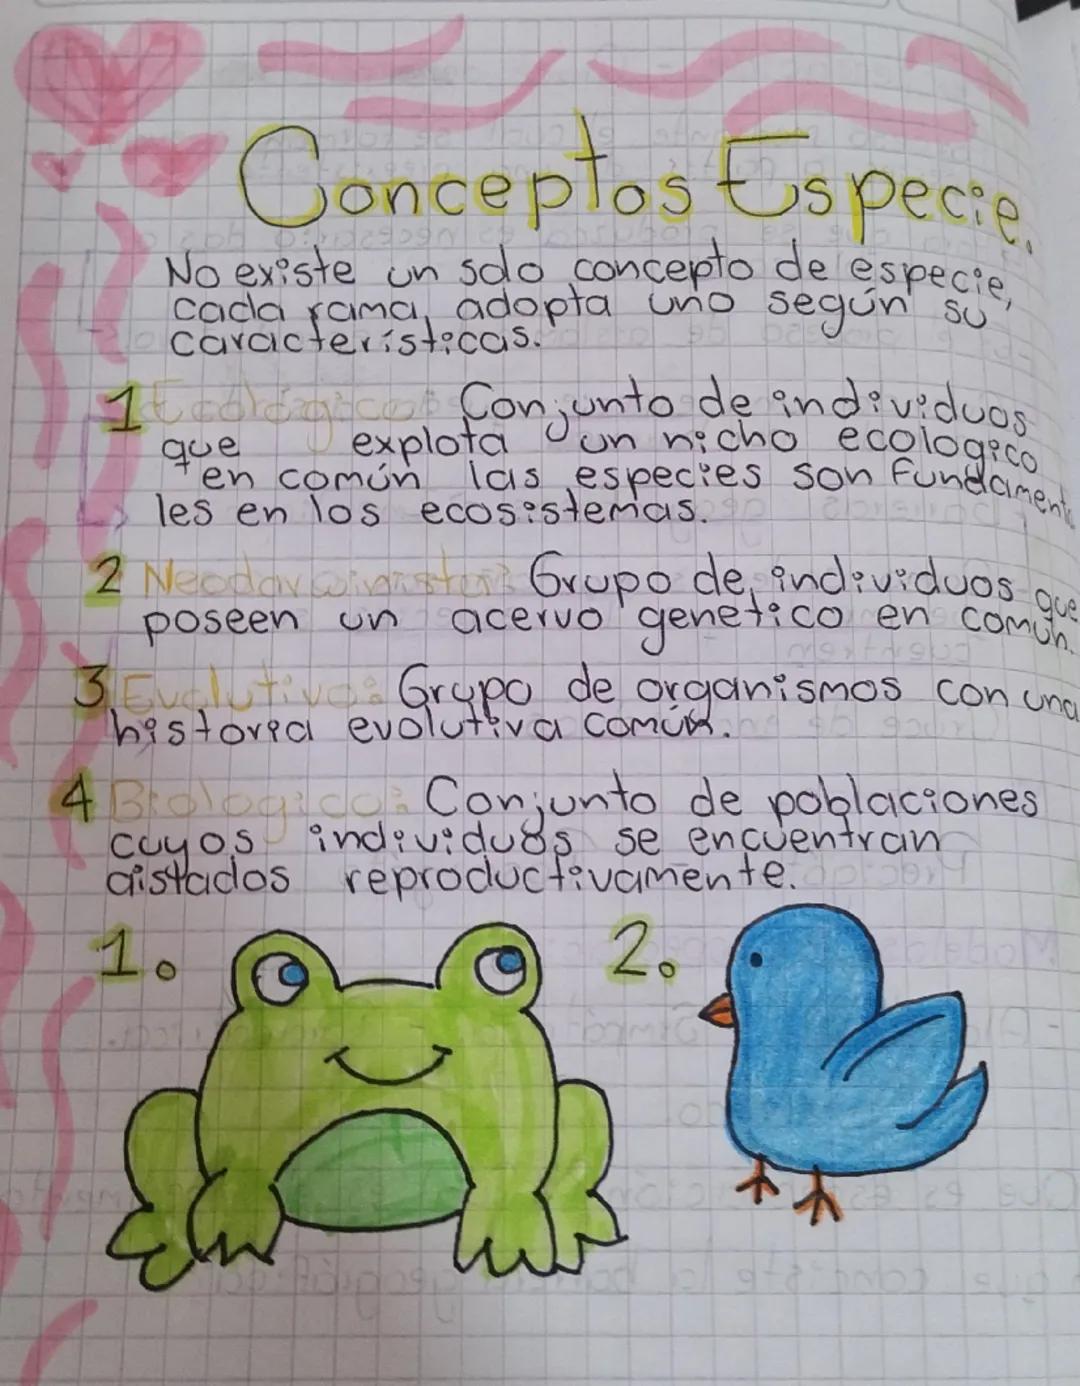 Conceptos Especie.
No existe un solo concepto de especie,
cada rama, adopta uno según su
características.
1 Ecologico: Conjunto de individuos
que explota un nicho ecologico
en común las especies son fundament
les en los ecosistemas.
2 Neodarwinista: Grupo de individuos que
poseen un acervo genetico en común.
3 Evolutivo: Grupo de organismos con una
historia evolutiva común.
4 Biologico: Conjunto de poblaciones
cuyos individuos se encuentran
aistados reproductivamente.
1. 2.